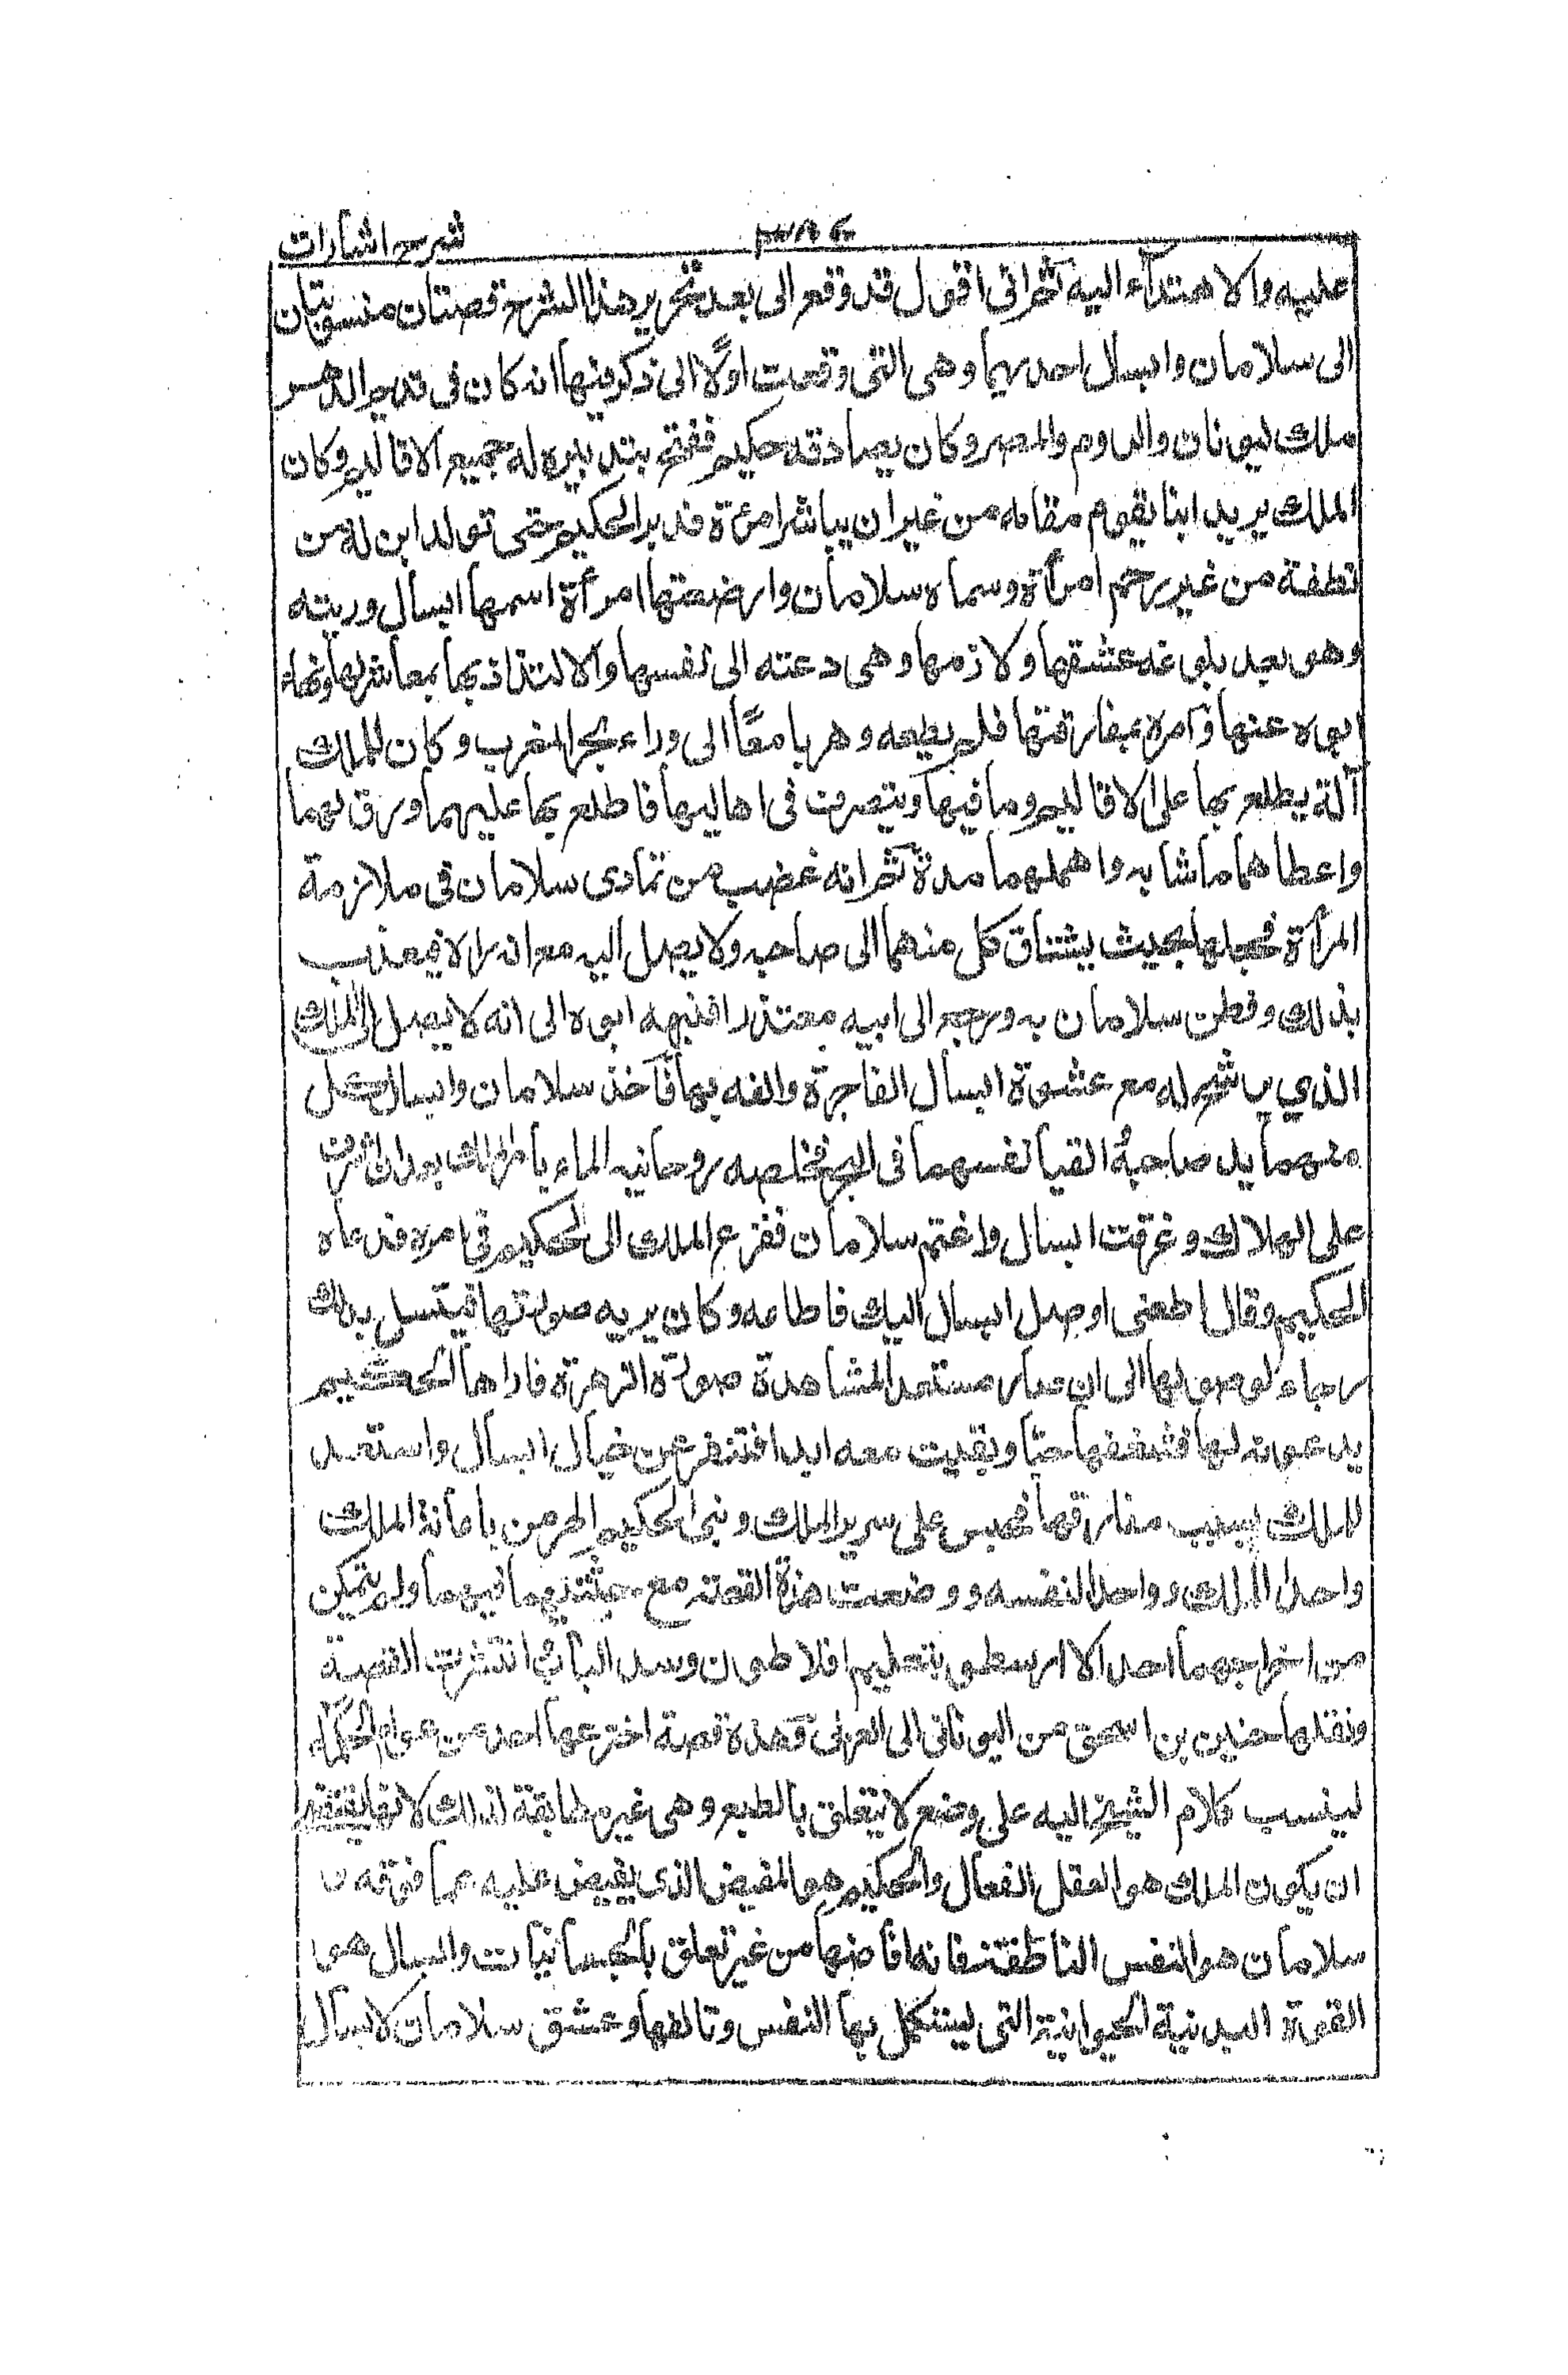 شرح اشارات
عليه والاهتدآء اليه ثم انى اقول قد وقع الى بعد تحرير هذا الشرح قصتان منسوبتان
الى سلامان وابسال احدىهما وهى التى وقعت اولًا الى ذكر فيها انه كان فى قديم الدهر
ملك ليونان والروم والمصر وكان يصادقه حكيم ففتح بتدبيره له جميع الاقاليم وكان
الملك يريد ابنا يقوم مقامه من غير ان يباشر امرءة فدبر الحكيم حتى تولد ابن له من
نطفته من غير رحم امرأة وسماه سلامان وارضعتها امرأة اسمها ابسال وربته
وهو بعد بلوغه عشقها ولازمها وهى دعته الى نفسها والالتذاذ بها بمعاشرتها ونهاه
ابوه عنها وآمره بمفارقتها فلم يطعه وهربا معًا الى وراء بحر المغرب وكان للملك
آلة يطلع بها على الاقاليم وما فيها ويتصرف فى اهاليها فاطلع بها عليهما ورق لهما
واعطاهما ما شا به واهملهما مدة ثم انه غضب من تمادى سلامان فى ملازمة
المرأة فجعلها بحيث يشتاق كل منهما الى صاحبه ولا يصل اليه مع انه يراه فيعذب
بذلك وفطن سلامان به ورجع الى ابيه معتذرا فنبهه ابوه الى انه لا يصل الى الملك
الذي يرشح له مع عشقة ابسال الفاجرة والفه بها فآخذ سلامان وابسال كل
منهما يد صاحبه والقيا نفسهما فى البحر فخلصه روحانيه الماء بامر الملك بعد ان اشرف
على الهلاك وغرقت ابسال واغتم سلامان ففزع الملك الى الحكيم فى امره فدعاه
الحكيم وقال اطعنى اوصل ابسال اليك فاطاعه وكان يريه صورتها فيتسلى بذلك
رجاء لوصولها الى ان صار مستعدا لمشاهدة صورة الزهرة فاراها الحكيم
بدعوته لها فشغفها حبًا وبقيت معه ابدا فتنفر عن خيال ابسال واستعد
للملك بسبب مفارقتها فجلس على سرير الملك وبنى الحكيم الهرمين باعانة الملك
واحدا للملك وواحدا لنفسه ووضعت هذه القصة مع جثتيهما فيهما ولم يتمكن
من اخراجهما احد الا ارسطو بتعليم افلاطون وسد الباب وانتشرت القصة
ونقلها حنين بن اسحق من اليونانى الى العربى وهذه قصة اخترعها احد من عوام الحكماء
لينسب كلام الشيخ اليه على وضع لا يتعلق بالطبع وهى غير مطابقة لذلك لانها يقتضى
ان يكون الملك هو العقل الفعال والحكيم هو الفيض الذى يفيض عليه مما فوقه و
سلامان هو النفس الناطقة فانه افاضها من غير تعلق بالجسمانيات وابسال هو
القوة البدنية الحيوانية التى ليستكمل بها النفس وتالفها وعشق سلامان لابسال